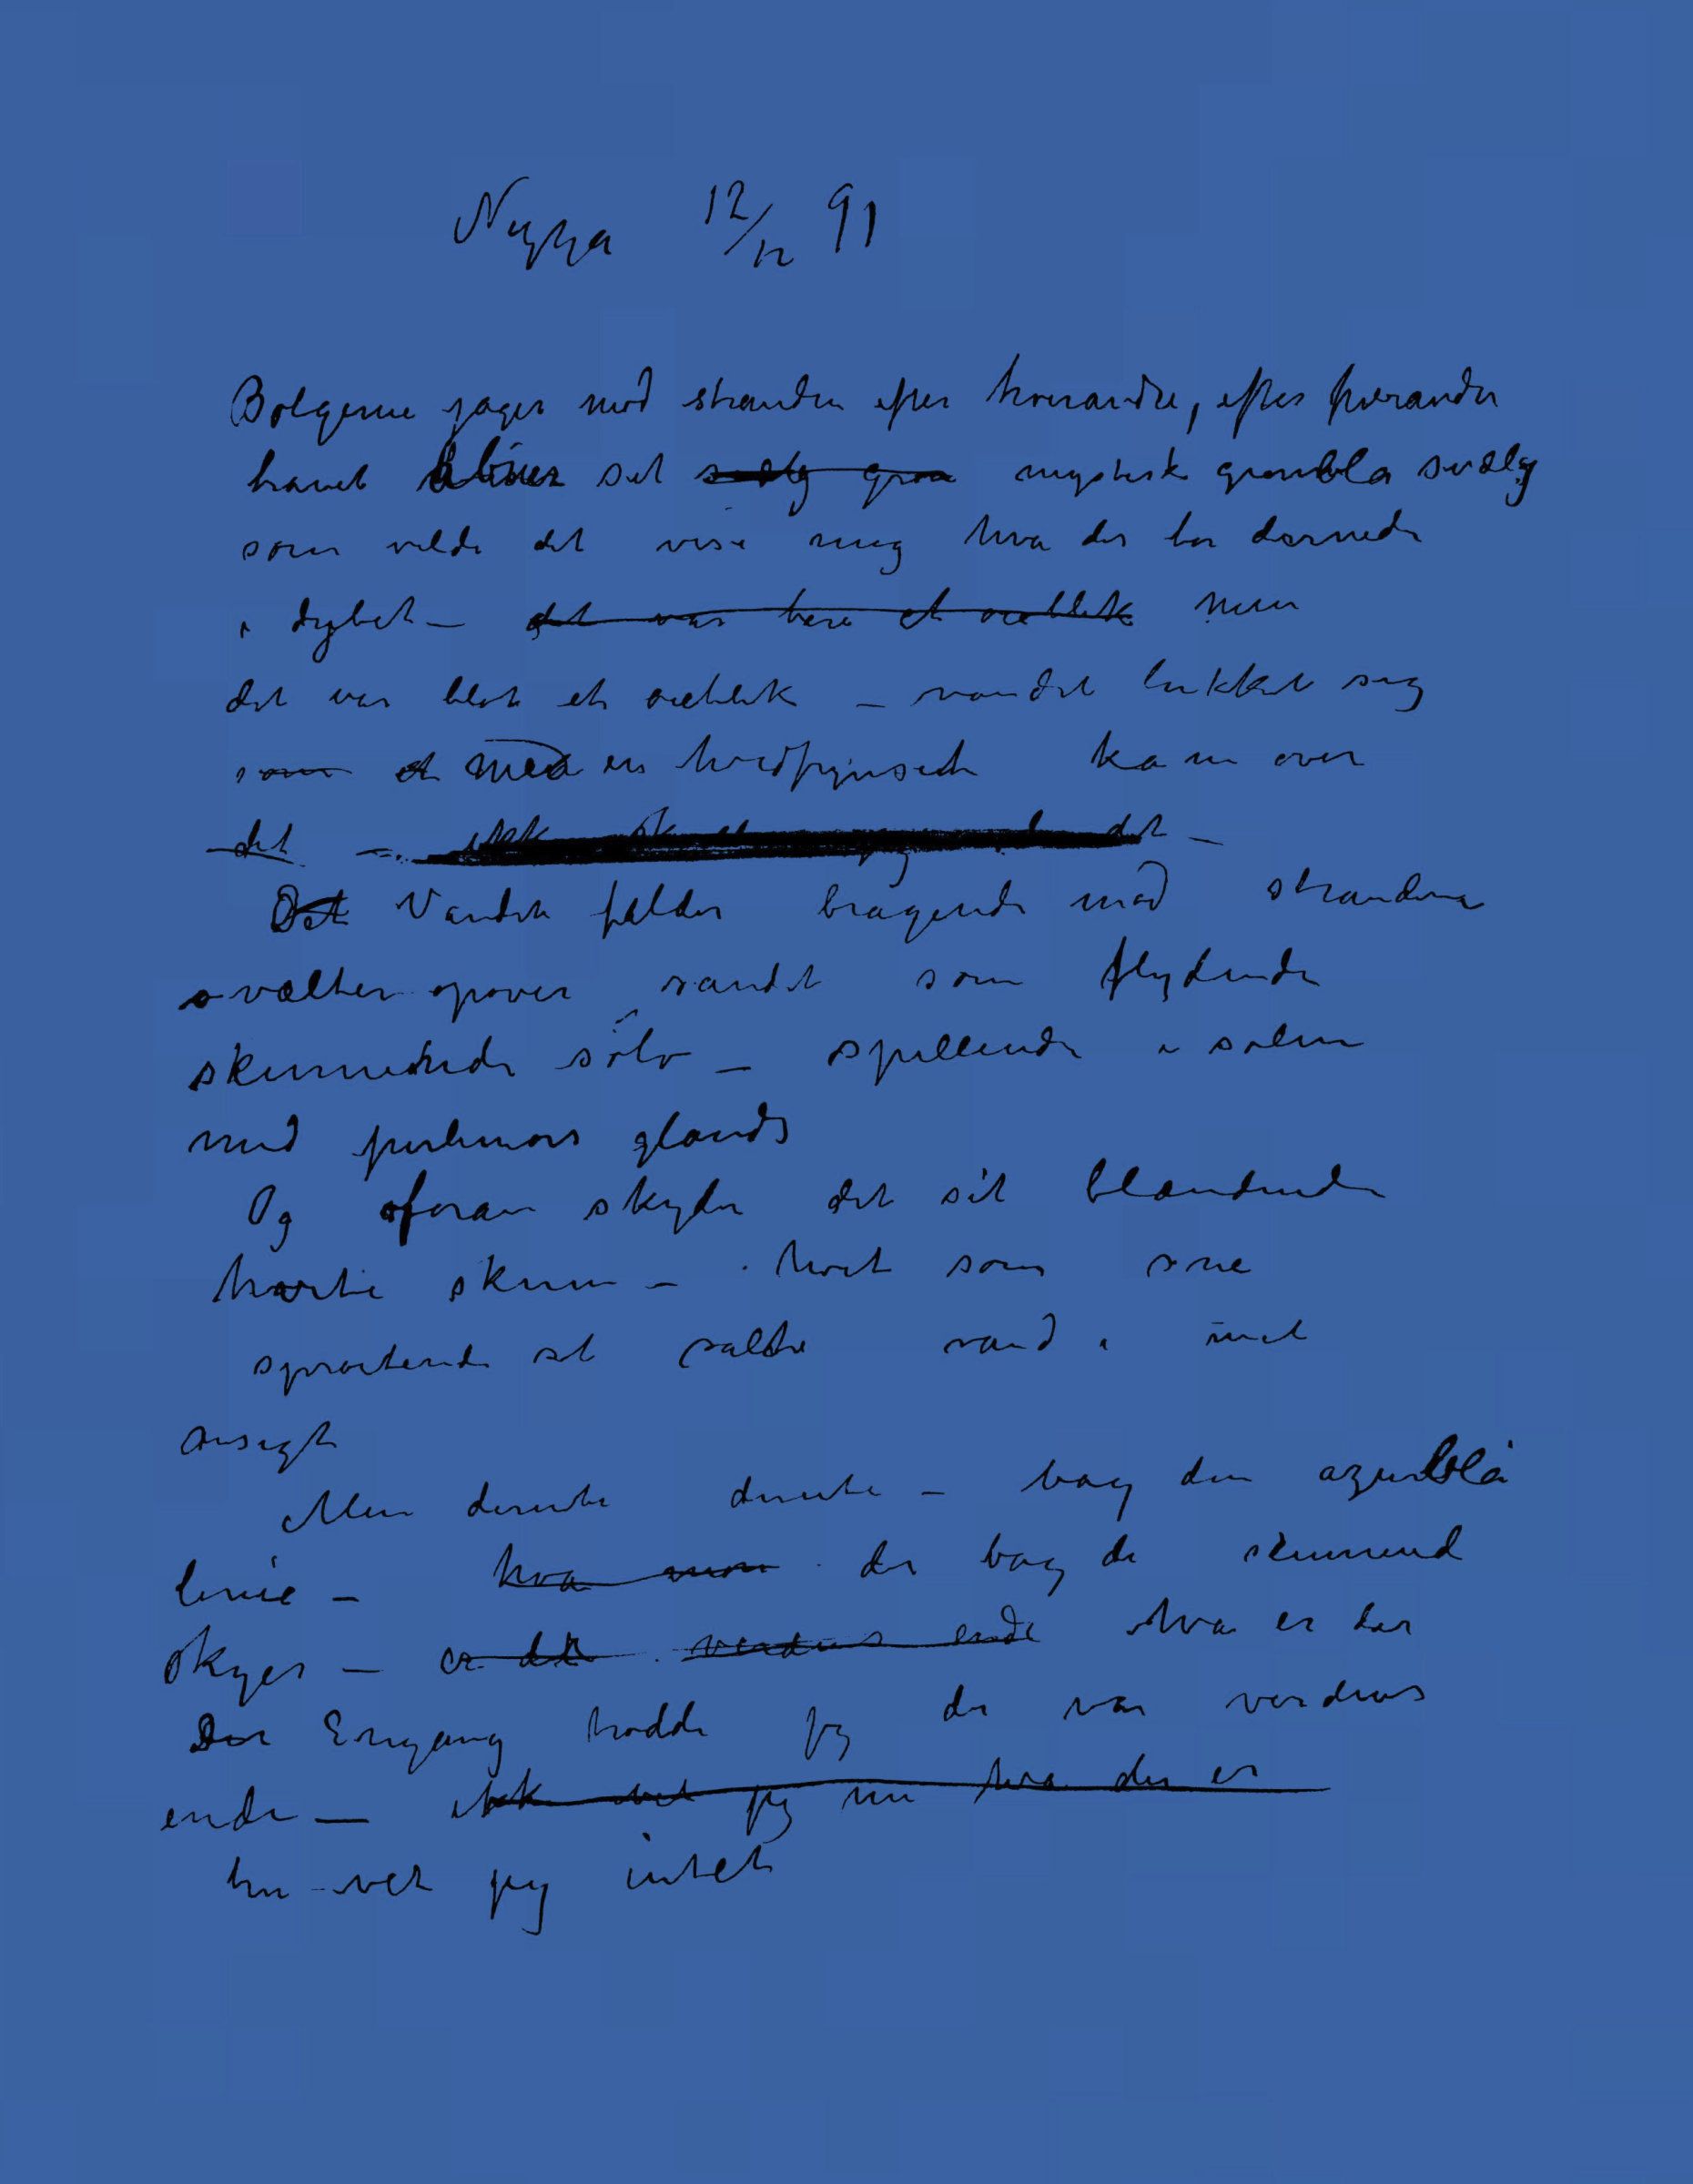 Nizza 12/12 91
Bølgerne jager mod stranden efter hverandre, efter hverandre
havet åbner sit svælg grøn mystisk grønblå svælg
som vilde det vise mig hva der bor dernede
i dybet – det var bare et øieblik men
det var blot et øieblik – vandet lukket sig
som et med en hvidfrynset kam over
det – ikke det –
Det Vandet falder bragende mod stranden
vælter opover sandet som flydende
skinnende sölv – spillende i solen
med perlemors glands
Og foran skyder det sit blændende
hvite skum – hvit som sne
sprøitende sit salte vand i mit
ansigt
Men derute derute – bag den azurblå
linie – hva mon der bag de skinnend
skyer – er det verdens ende Hva er der
Den Engang trodde jeg der var verdens
ende – ikke vet jeg nu hva der er
nu vet jeg intet